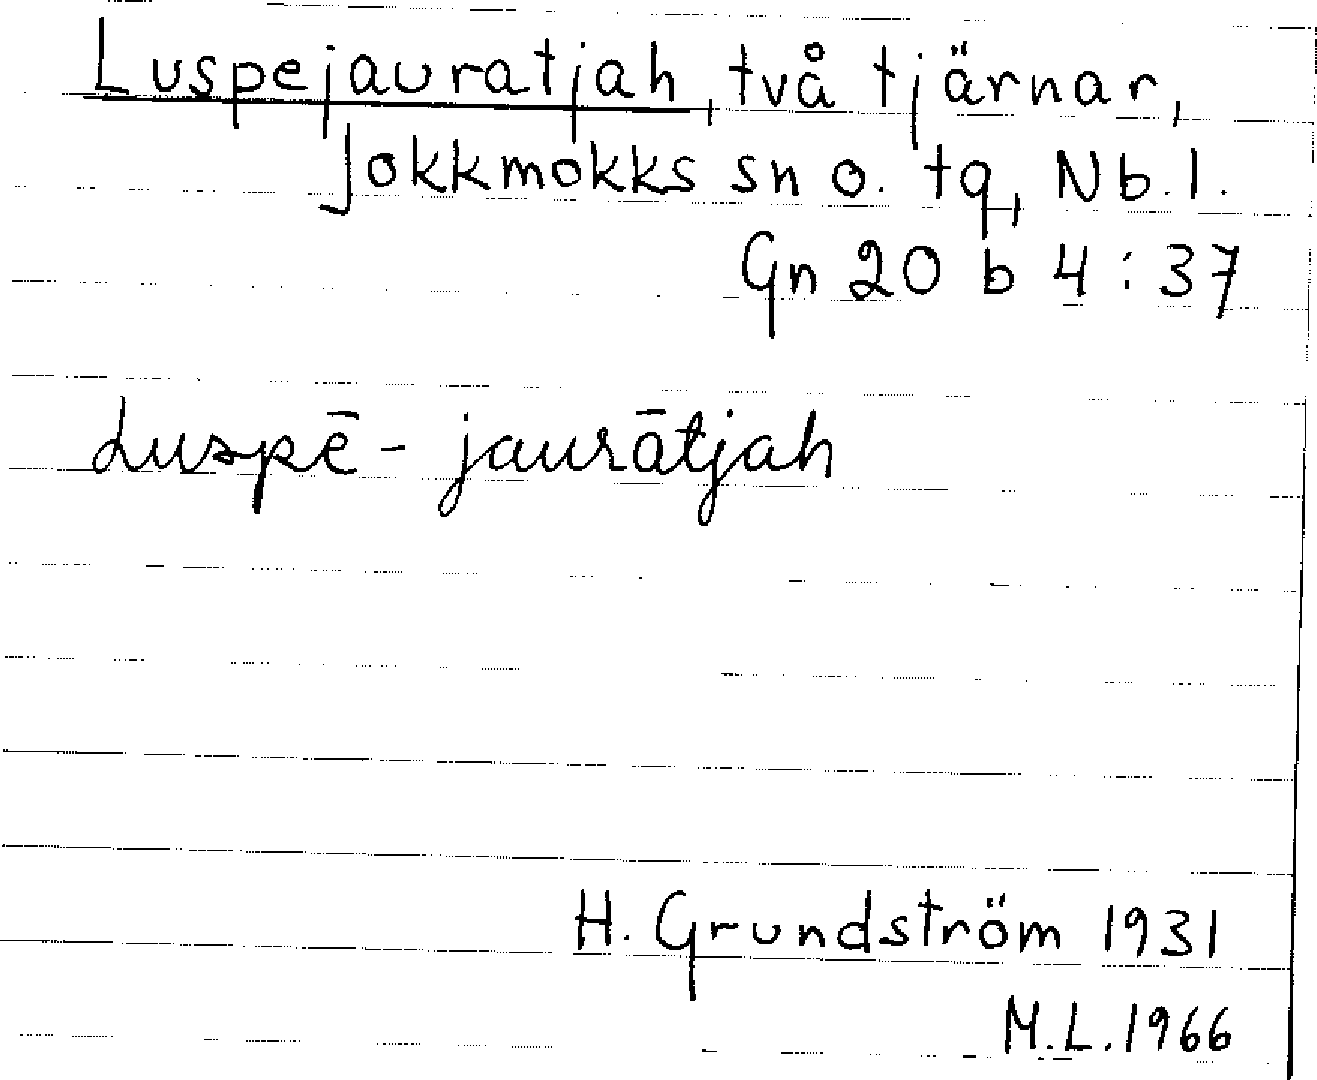 Luspejauratjah, två tjärnar,
Jokkmokks sn o. tg, Nb.l.
Gn 20 b 4:37
Luspē-jaurātjah
H. Grundström 1931
M.L.1966